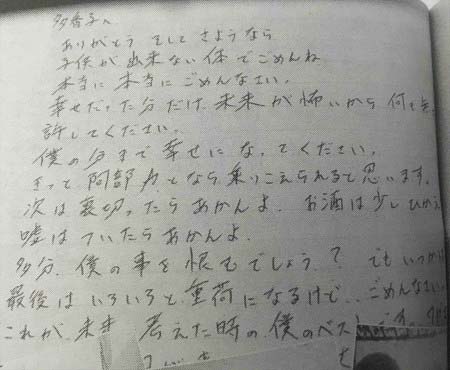 多香子へ
ありがとう そして さようなら
子供が出来ない体でごめんね
本当に本当にごめんなさい。
幸せだった分だけ、未来が怖いから 何も
許してください。
僕の分まで幸せになってください。
きっと 阿部力となら乗りこえられると思います。
次は裏切ったらあかんよ。お酒は少しひかえ
嘘はついたらあかんよ。
多分、僕の事を恨むでしょう? でもいつか
最後はいろいろと重荷になるけど、ごめんなさい
これが、未来 考えた時の僕のベスト です。